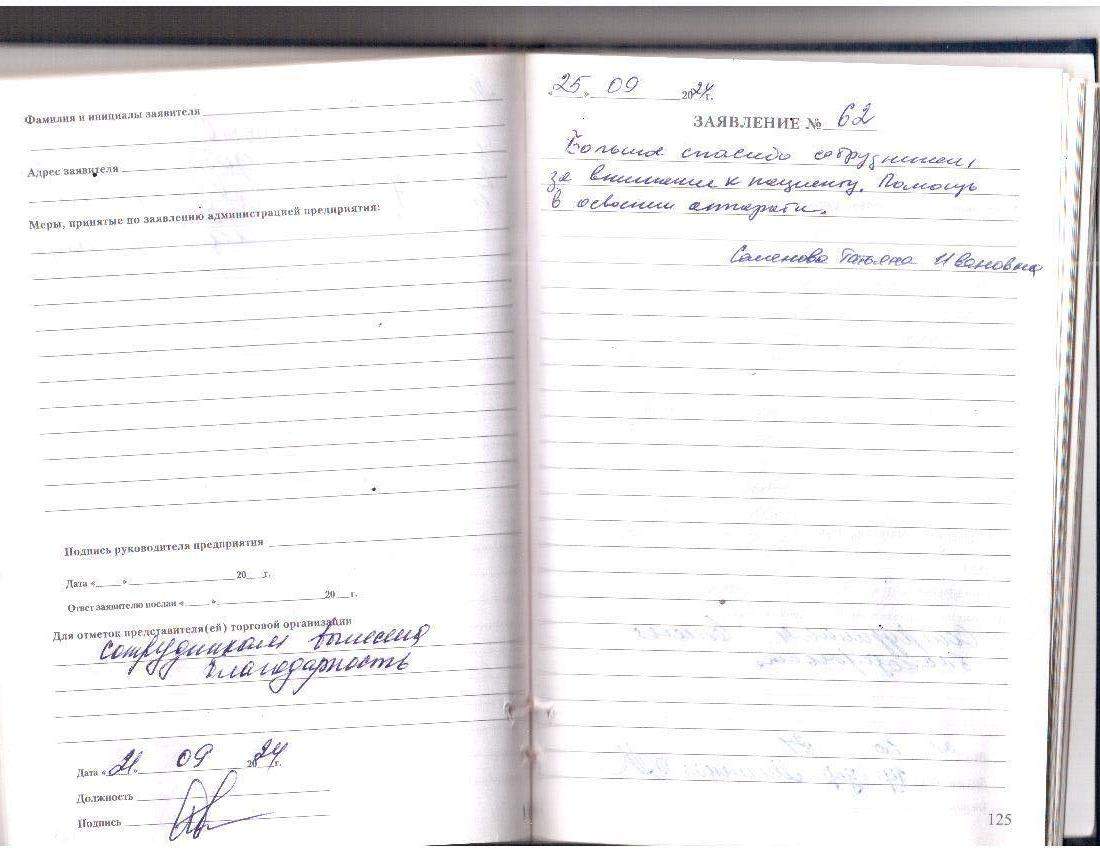 Фамилия и инициалы заявителя
Адрес заявителя
Меры, принятые по заявлению администрацией предприятия:
Подпись руководителя предприятия
Дата «____» ____ 20__г.
Ответ заявителю послан «____» ____ 20__г.
Для отметок представителя(ей) торговой организации
сотрудникам вынесена
благодарность
Дата «21» 09 2024г.
Должность
Подпись
«25» 09 2024г.
ЗАЯВЛЕНИЕ № 62
Большое спасибо сотрудникам,
за внимание к пациенту. Помощь
в освоении аппарата.
Семенова Татьяна Ивановна
125